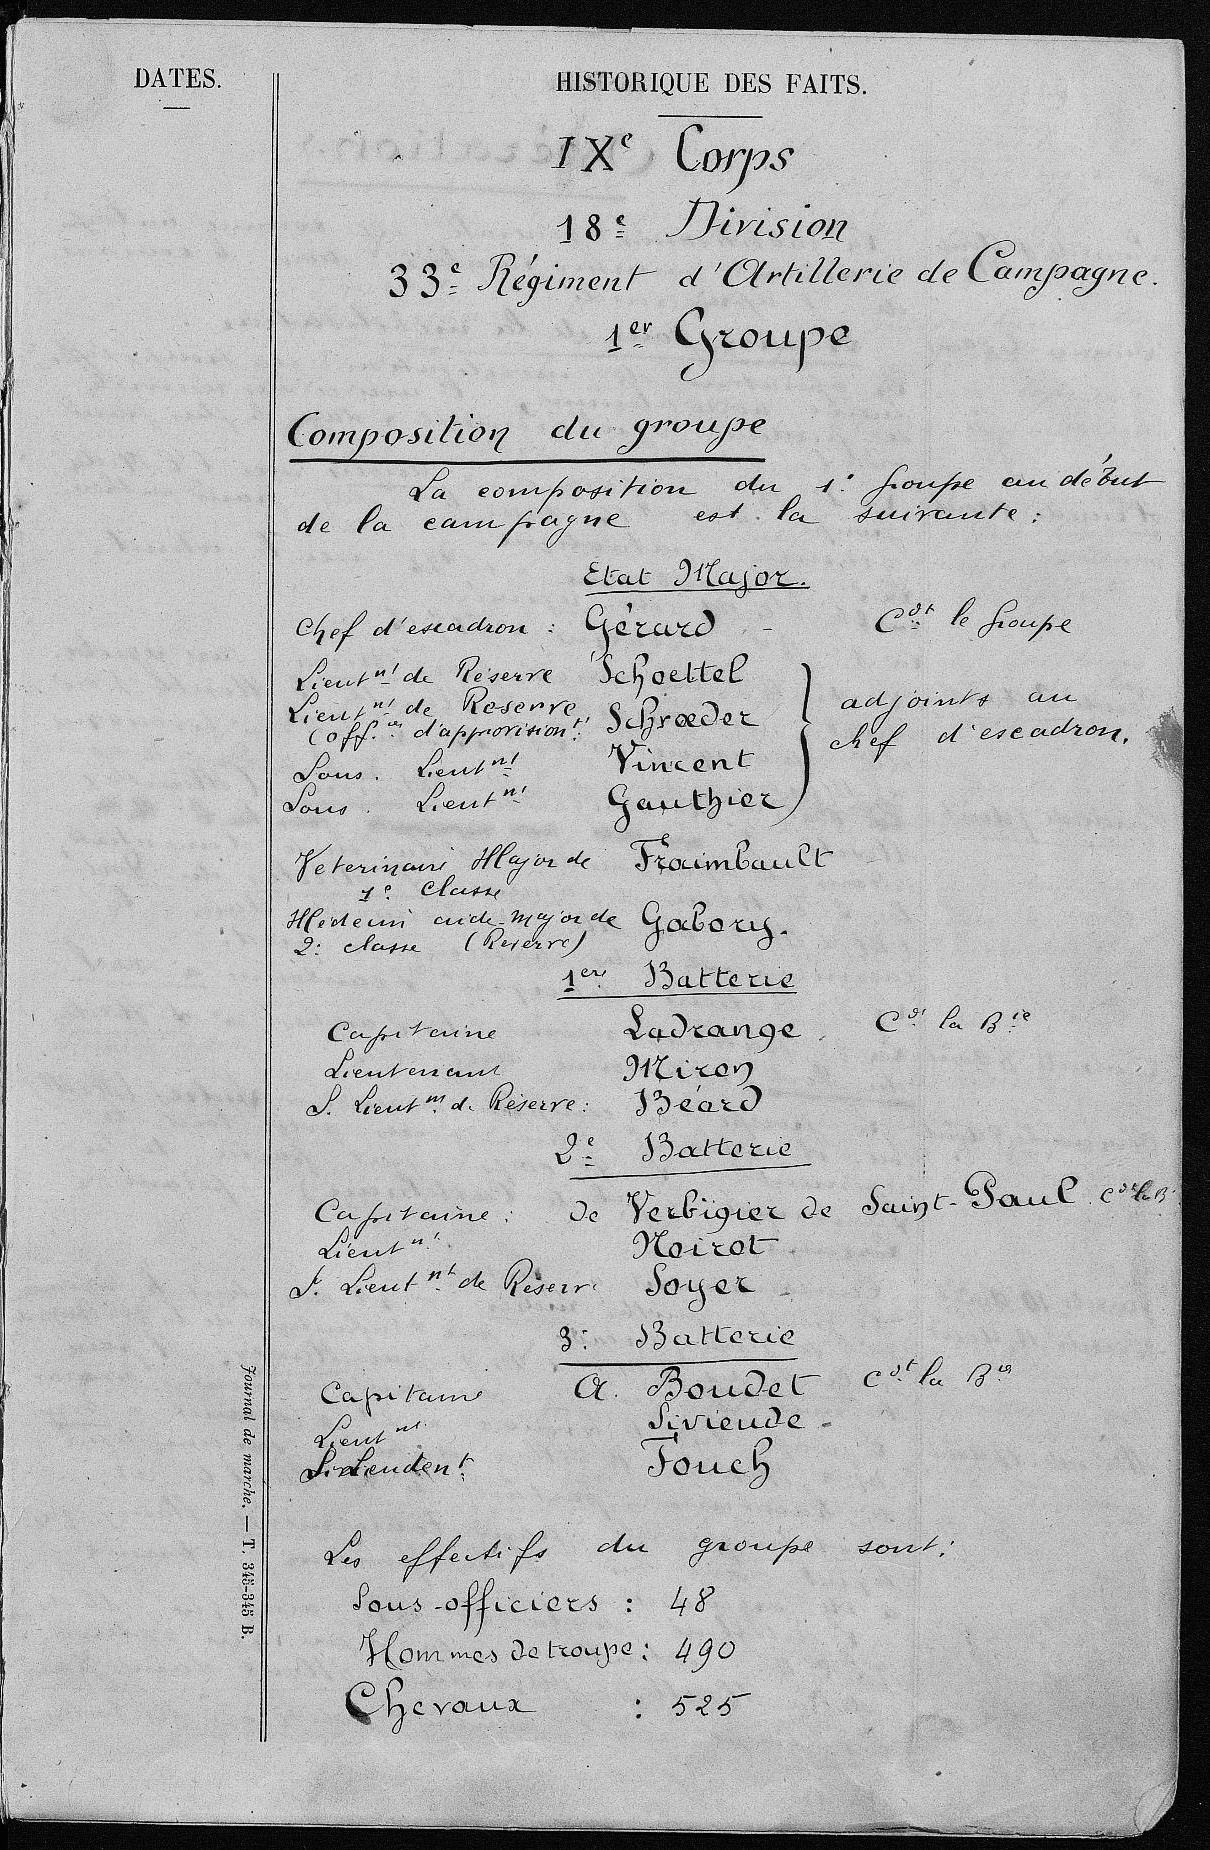 DATES.
HISTORIQUE DES FAITS.
IXe Corps
18e Division
33e Régiment d'Artillerie de Campagne.
1er Groupe
Composition du groupe
La composition du 1e. groupe au début
de la campagne est la suivante :
Etat Major.
Chef d'escadron : Gérard - Cdt le groupe
Lieutnt de Réserve Schoettel
Lieutnt de Reserve Schrœder
(off.er d'approvisiont.)
adjoints au
chef d'escadron.
Sous. Lieutnt Vincent
Sous. Lieutnt Gauthier
Veterinaire Major de Fraimbault
1e classe
Médecin aide-major de Gabory.
2e classe (Réserve)
1ere Batterie
Capitaine Ladrange Cdt la Bie
Lieutenant Miron
S. Lieutnt de Réserve : Béard
2e Batterie
Capitaine : de Verbigier de Saint-Paul Cdt la B
Lieutnt Noirot
S. Lieutnt de Réserve Soyer
3e Batterie
Capitaine A. Boudet Cdt la Bie
Lieutnt Siviende
Fouch
Les effectifs du groupe sont :
Sous-officiers : 48
Hommes de troupe : 490
Chevaux : 525
Journal de marche. — T. 345-345 B.